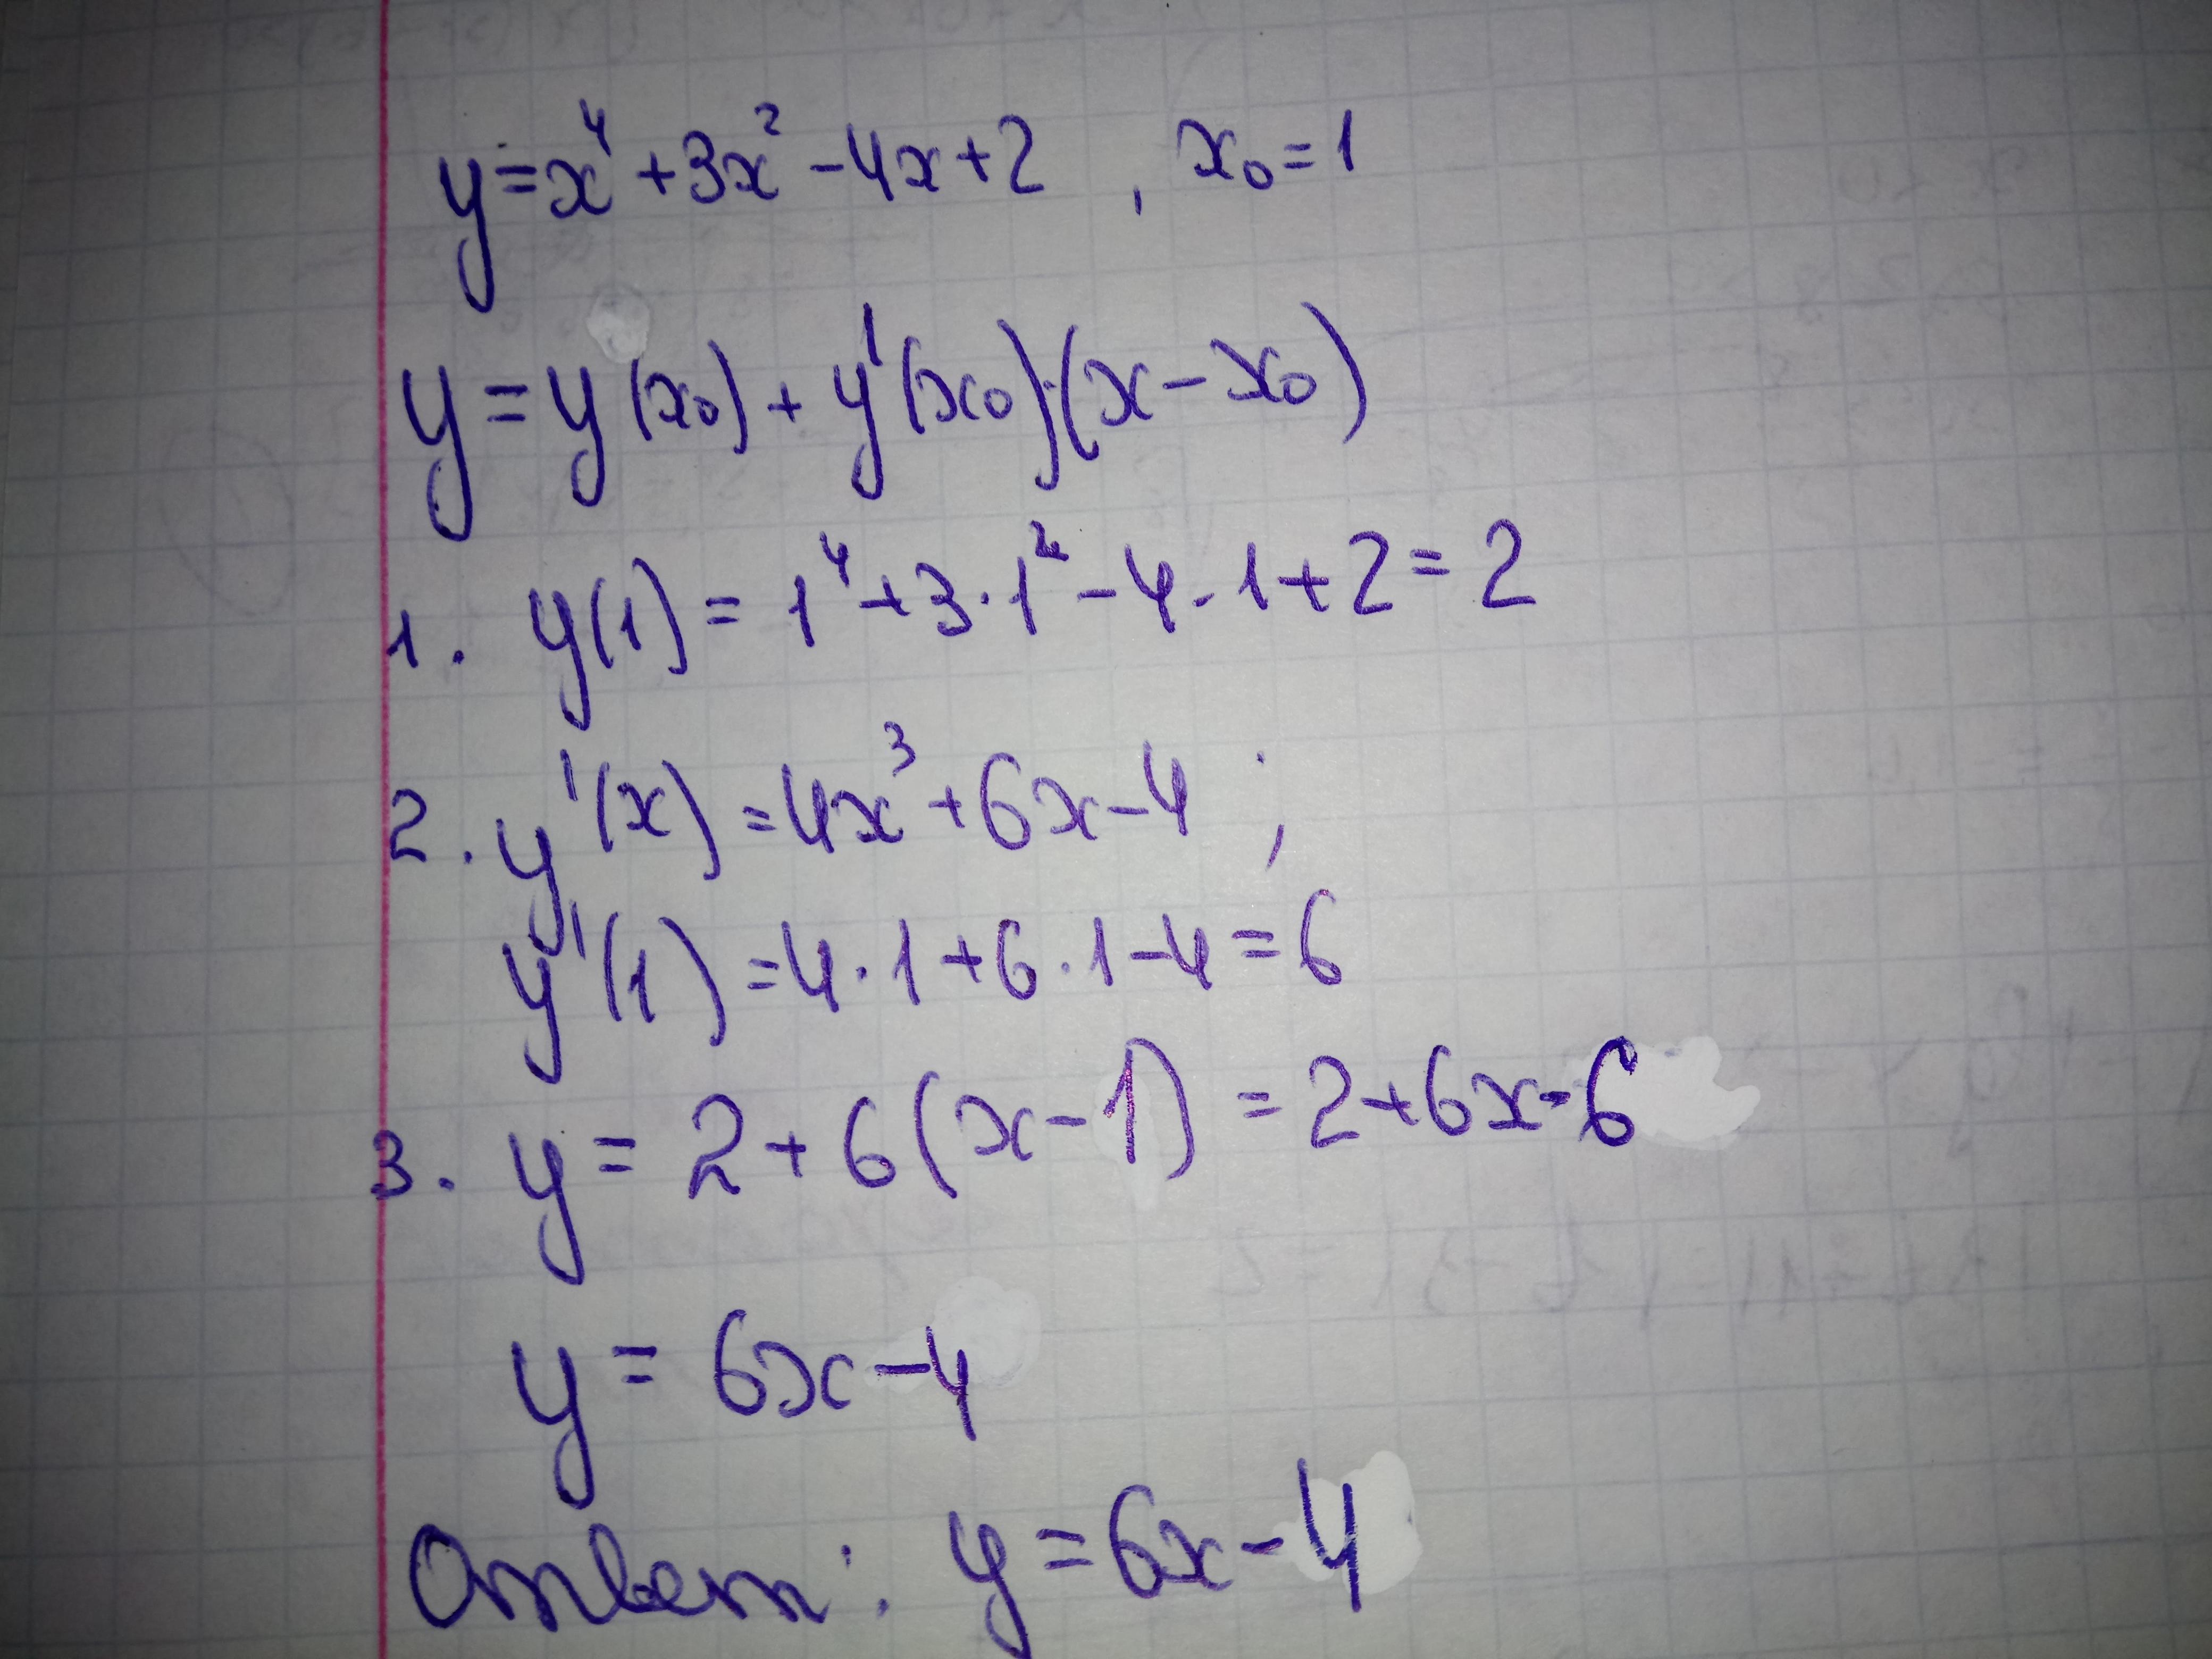 y = x⁴ + 3x² - 4x + 2 , x₀ = 1
y = y(x₀) + y'(x₀)·(x - x₀)
1. y(1) = 1⁴ + 3·1² - 4·1 + 2 = 2
2. y'(x) = 4x³ + 6x - 4 ;
y'(1) = 4·1 + 6·1 - 4 = 6
3. y = 2 + 6(x - 1) = 2 + 6x - 6
y = 6x - 4
Ответ: y = 6x - 4